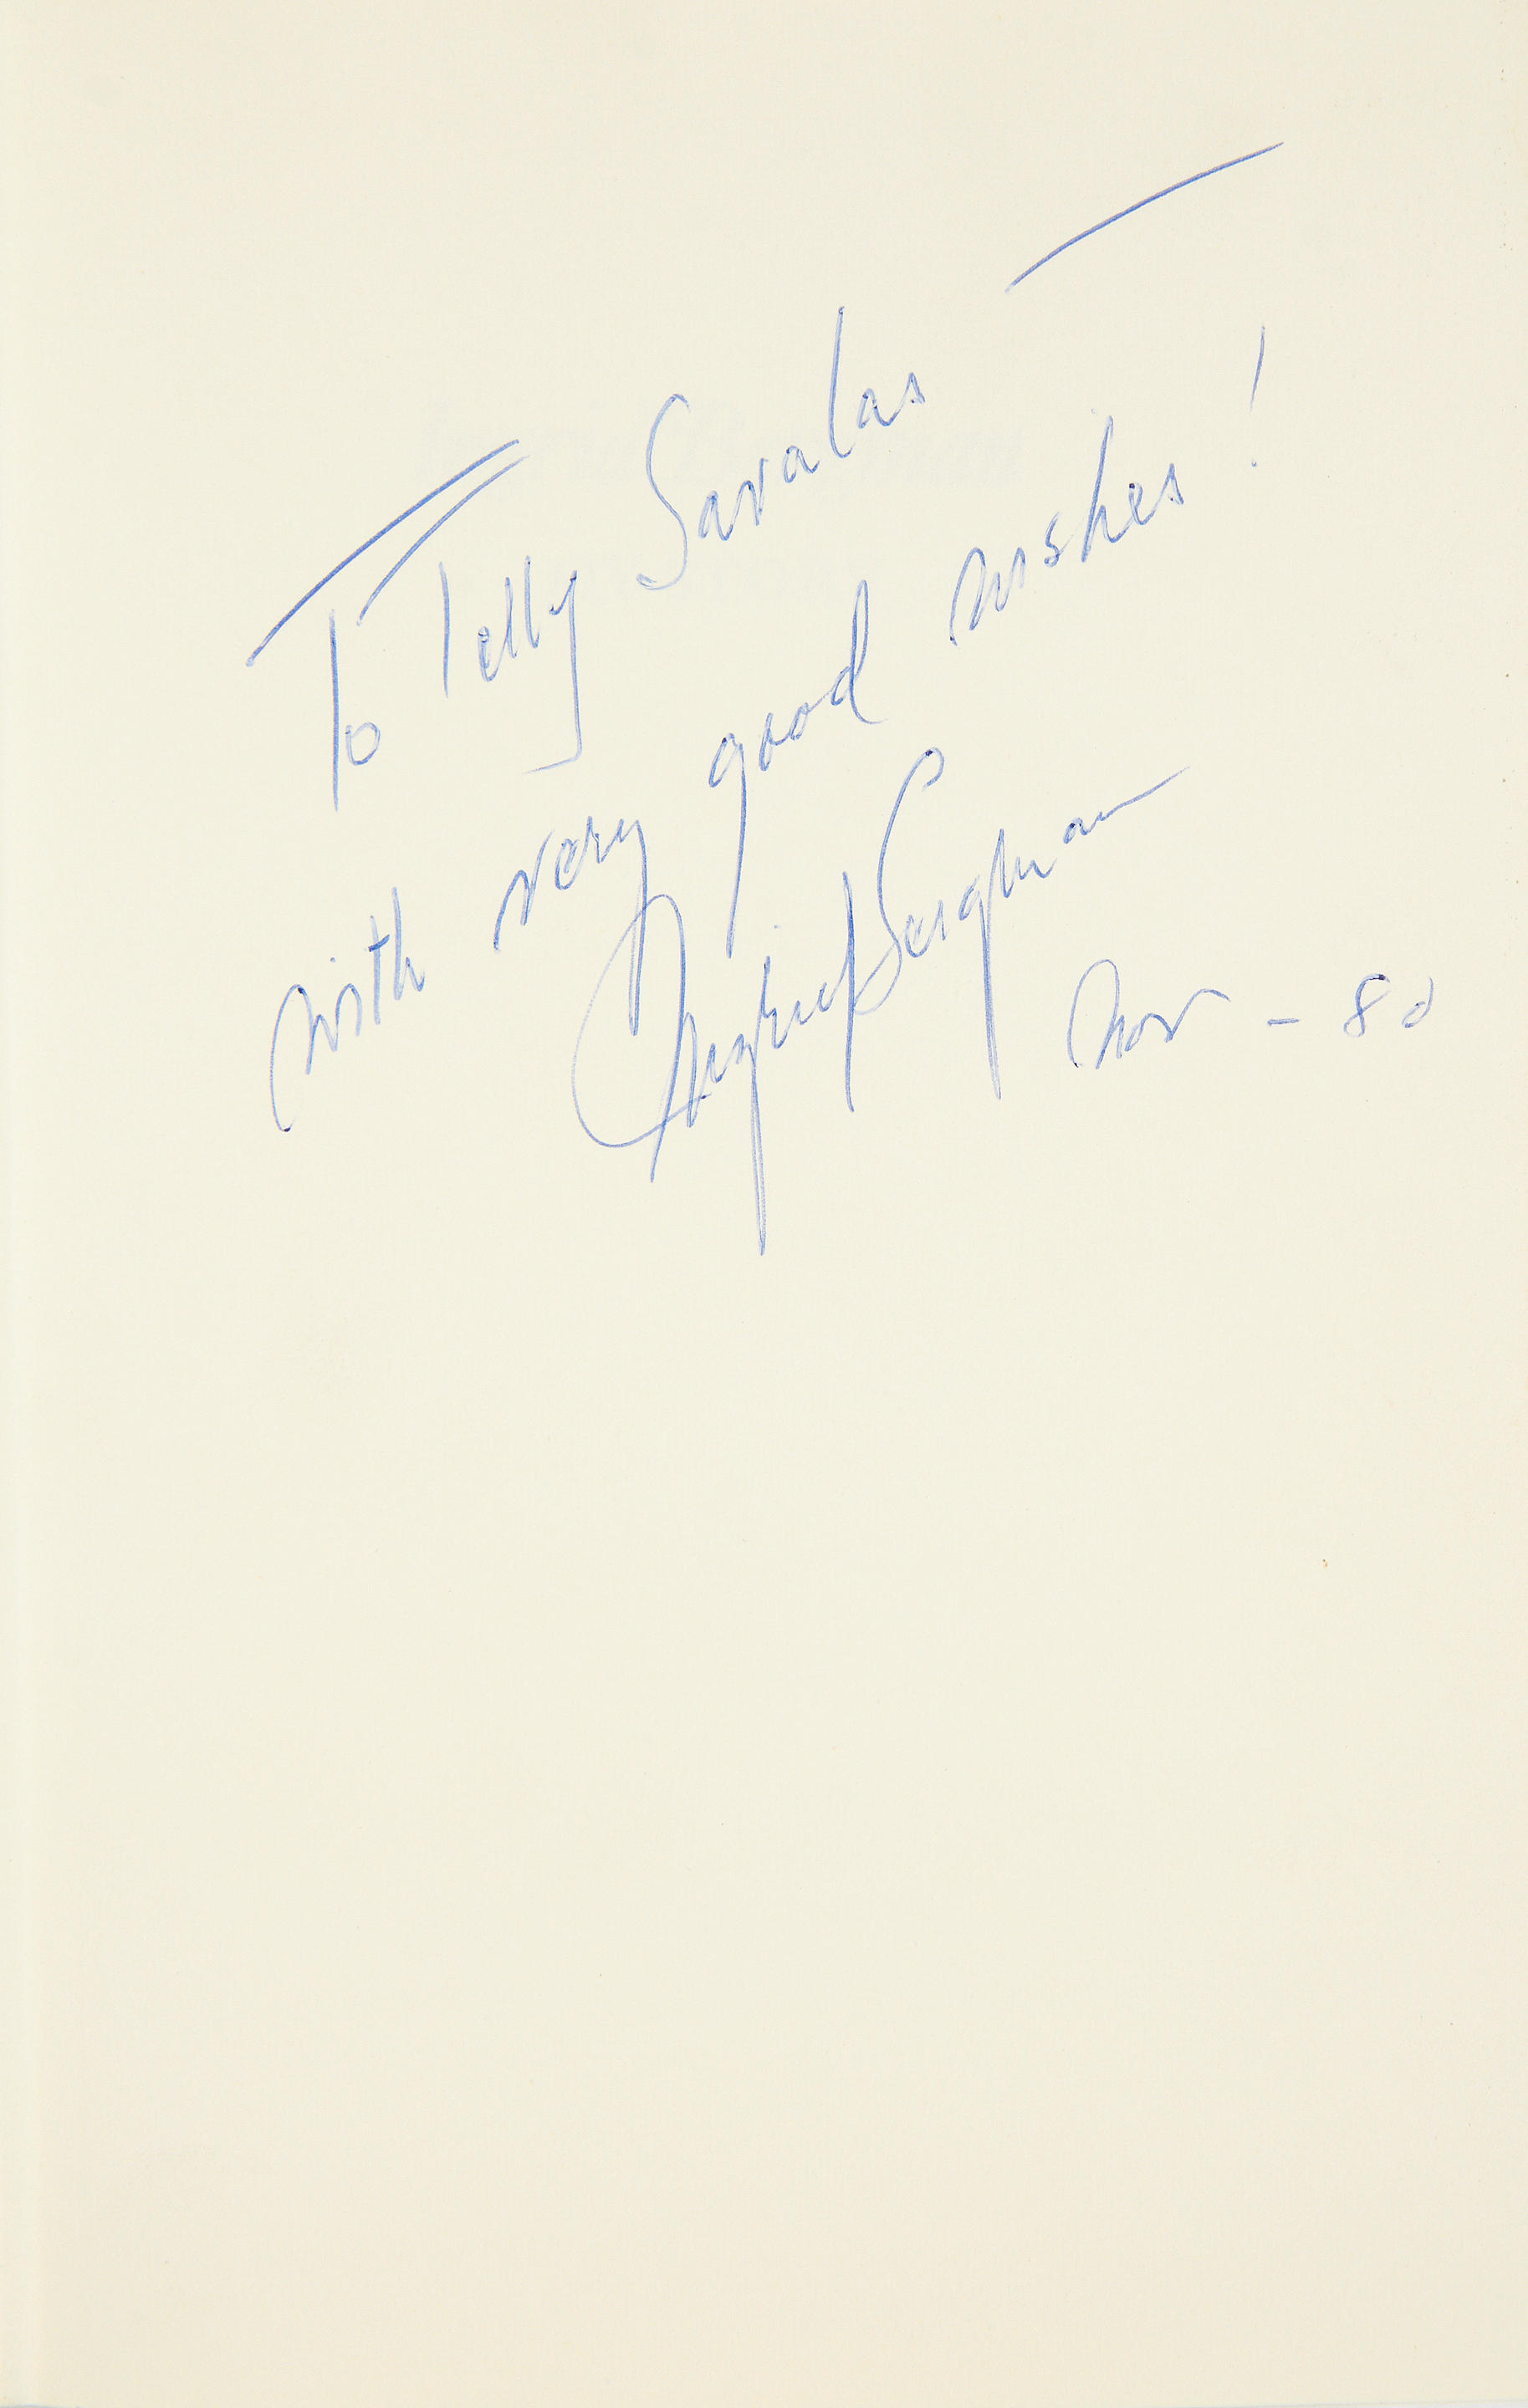 To Telly Savalas —
with very good wishes!
Ingrid Bergman
Nov - 80